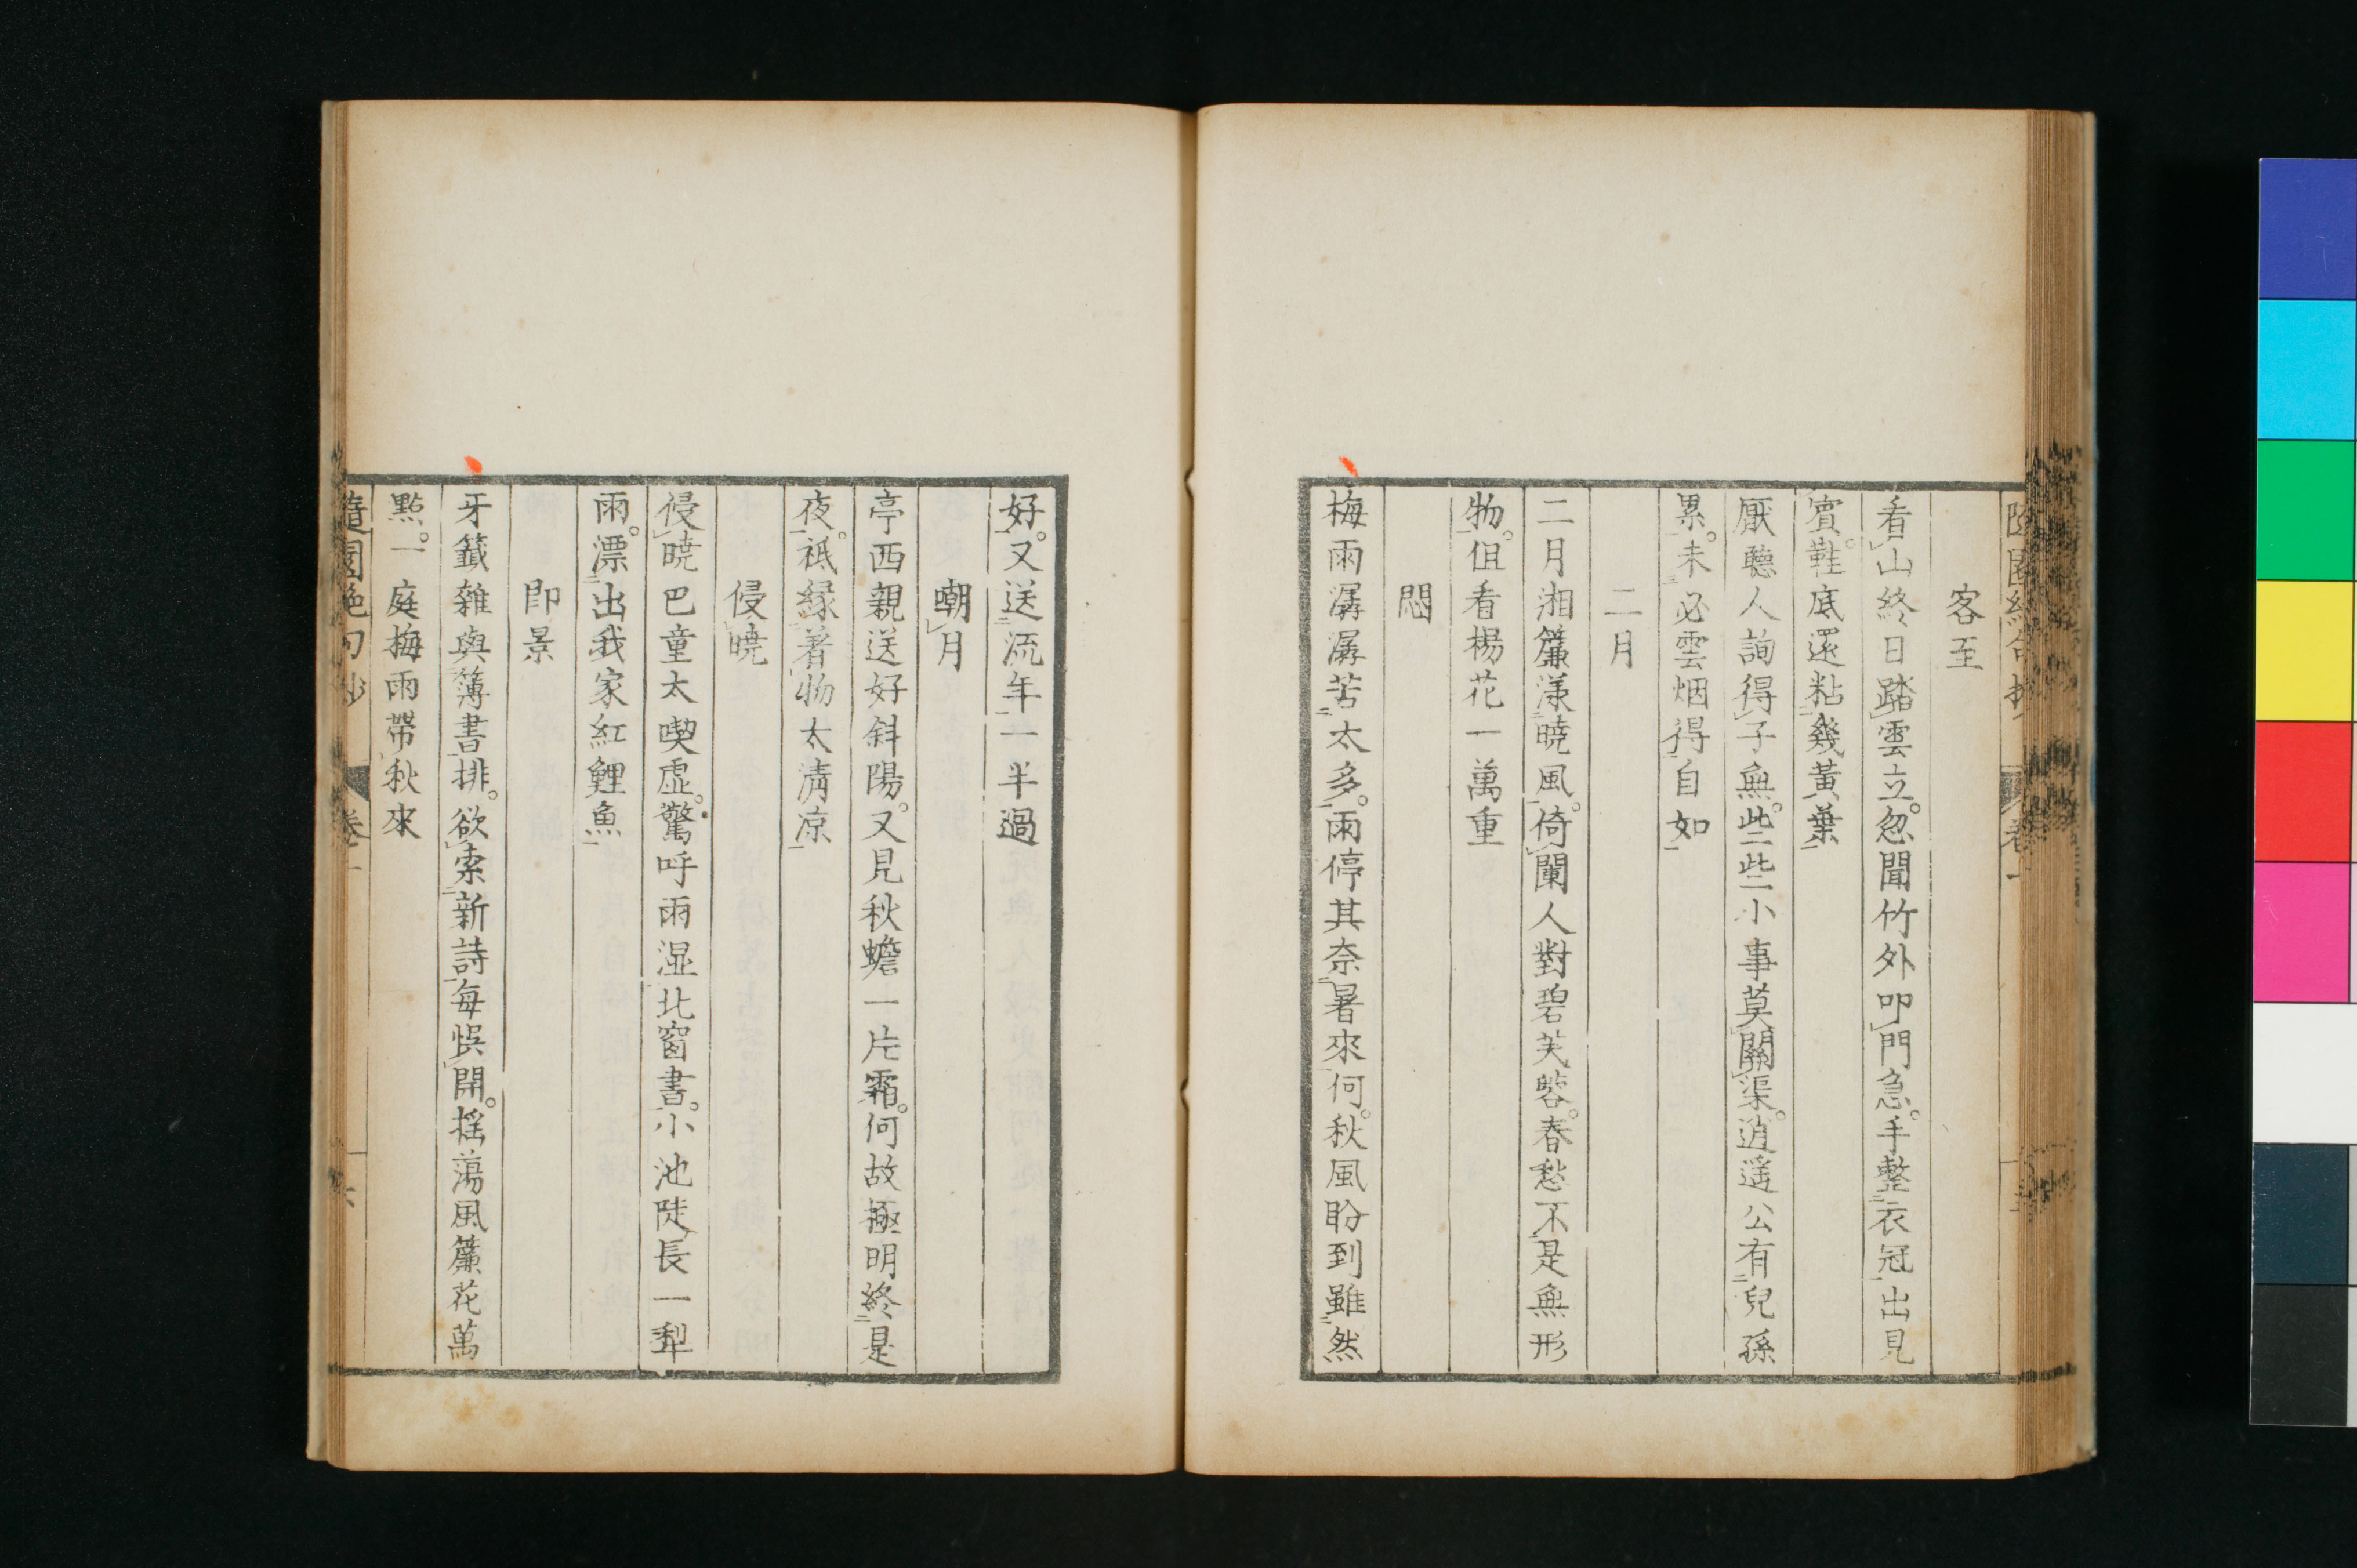 客至
看山終日踏雲立。忽聞竹外叩門急。手整衣冠出見
賓。鞋底還粘幾黃葉
厭聽人詢得子無。些些小事莫關渠。逍遥公有兒孫
累。未必雲烟得自如
二月
二月湘簾漾曉風。倚闌人對碧芙蓉。春愁不是無形
物。但看楊花一萬重
悶
梅雨潺潺苦太多。雨停其奈暑來何。秋風盼到雖然
好。又送流年一半過
嘲月
亭西親送好斜陽。又見秋蟾一片霜。何故極明終是
夜。祇縁著物太清凉
侵暁
侵暁巴童太喫虚。驚呼雨湿北窗書。小池陡長一犁
雨。漂出我家紅鯉魚
即景
牙籤雜與簿書排。欲索新詩每悞開。揺蕩風簾花萬
點。一庭梅雨帶秋來
隨園絶句抄 卷一 六